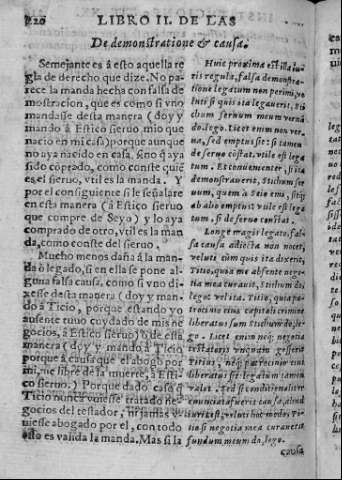 220 LIBRO II. DE LAS
De demonstratione & causa.
Semejante es â esto aquella re
gla de derecho que dize. No pa-
rece la manda hecha con falsa de
mostracion, que es como si vno
mandasse desta manera (doy y
mando â Estico sieruo mio que
nacio en mi casa) porque aunque
no aya nacido en casa, sino q̃ aya
sido cõprado, como conste quiē
es el sieruo, vtil es la manda. Y
por el consiguiente si le señalare
en esta manera (â Estico sieruo
que compre de Seyo) y lo aya
comprado de otro, vtil es la man
da, como conste del sieruo.
Mucho menos daña â la man-
da ô legado, si en ella se pone al-
guna falsa causa, como si vno di-
xesse desta manera (doy y man-
do â Ticio, porque estando yo
ausente tuuo cuydado de mis ne
gocios, â Estico sieruo) ô de esta
manera (doy y mando â Ticio,
porque â causa que el abogo por
mi, me libre de la muerte, â Esti-
co sieruo.) Porque dado caso q̃
Ticio nunca vuiesse tratado ne-
gocios del testador, ni jamas v-
uiesse abogado por el, con todo
esto es valida la manda. Mas si la
Huic proxima est illa iu-
ris regula, falsa demonstra-
tione legatum non perimi, ve
luti si quis ita legauerit, Sti-
chum seruum meum verna-
do, lego. Licet enim non ver-
na, sed emptus sit: si tamen
de seruo cõstat, vtile est lega
tum. Et conuenienter, si ita
demonstrauerit, Stichum ser
uum, quem à Seio emi, sitq́;
ab alio emptus: vtile est lega
tum, si de seruo constat.
Longe magis legato, fal-
sa causa adiecta non nocet,
veluti cùm quis ita dixerit,
Titio, quia me absente nego-
tia mea curauit, Stichum do,
lego: vel ita. Titio, quia pa-
trocinio eius capitali crimine
liberatus sum Stichum do, le-
go. Licet enim neq; negotia
testatoris vnquam gesserit
Titius, neq; patrocinio eius
liberatus sit: legatum tamen
valet. Sed si conditionaliter
enunciata fuerit causa, aliud
iuris est, veluti hoc modo: Ti-
tio si negotia mea curauerit,
fundum meum do, lego.
causa